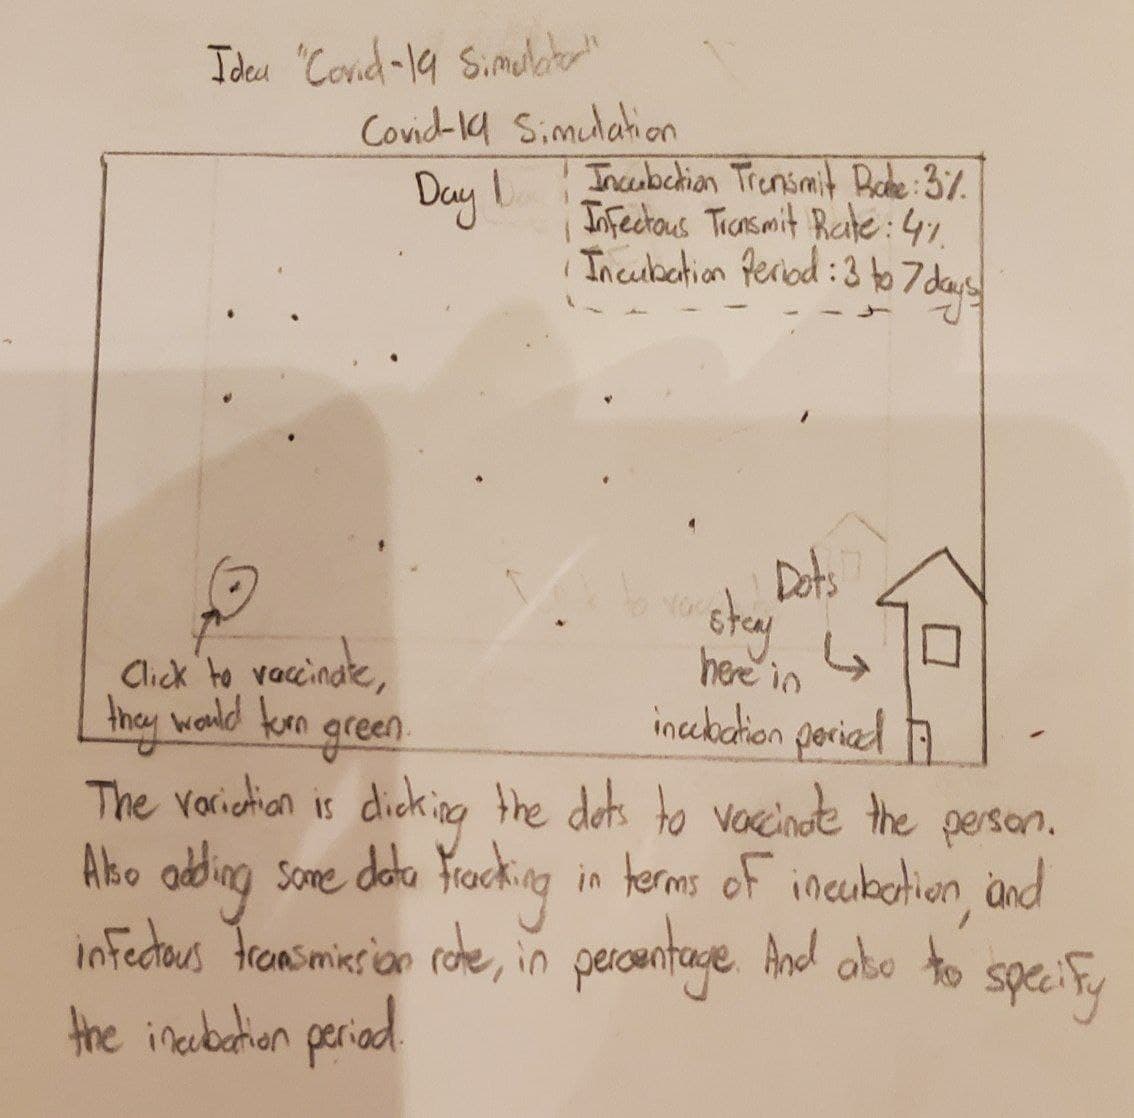 Idea "Covid-19 Simulator"
Covid-19 Simulation
Day 1
Incubation Transmit Rate: 3%.
Infectous Transmit Rate: 4%
Incubation Period: 3 to 7 days
Dots
stay
here in
incubation period
Click to vaccinate,
they would turn green.
The variation is clicking the dots to vaccinate the person.
Also adding some data tracking in terms of incubation, and
infectous transmission rate, in percentage. And also to specify
the incubation period.